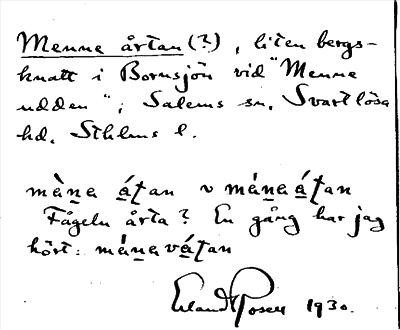 Menne årtan (?), liten bergs-
knatt i Bornsjön vid "Menne
udden"; Salems sn, Svartlösa
hd. Sthlms l.
mȧ̀ṉa á̱ṯan ~ mȧ́ṉaá̱ṯan
Fågeln årta? En gång har jag
hört: mȧ́ṉavá̱ṯan
Erland Rosell 1930.